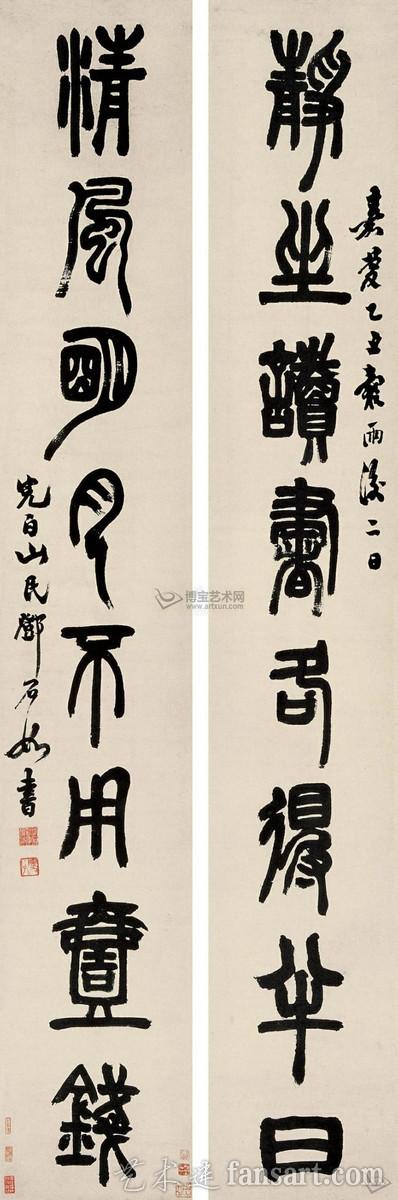 嘉慶乙丑穀雨後二日
靜坐讀書各得半日
清風明月不用壹錢
完白山民鄧石如書
博宝艺术网
www.artxun.com
艺术迷 fansart.com